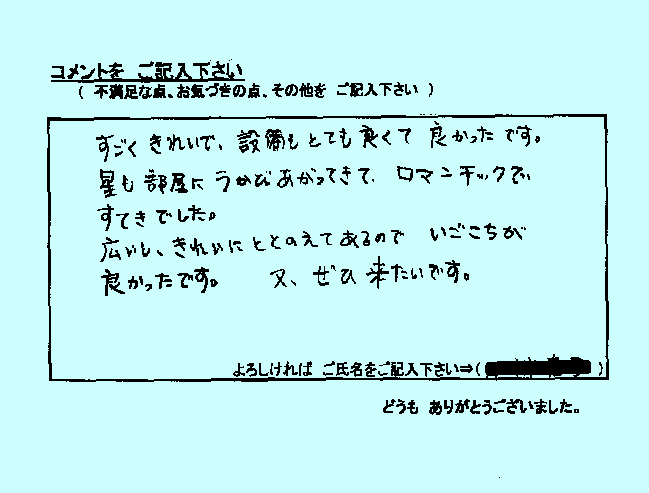 コメントを ご記入下さい
( 不満足な点、お気づきの点、その他を ご記入下さい )
すごく きれいで、設備も とても 良くて 良かったです。
星も 部屋に うかびあがってきて、ロマンチックで、
すてきでした。
広いし、きれいに ととのえてあるので いごこちが
良かったです。 又、ぜひ 来たいです。
よろしければ ご氏名をご記入下さい⇒( )
どうも ありがとうございました。